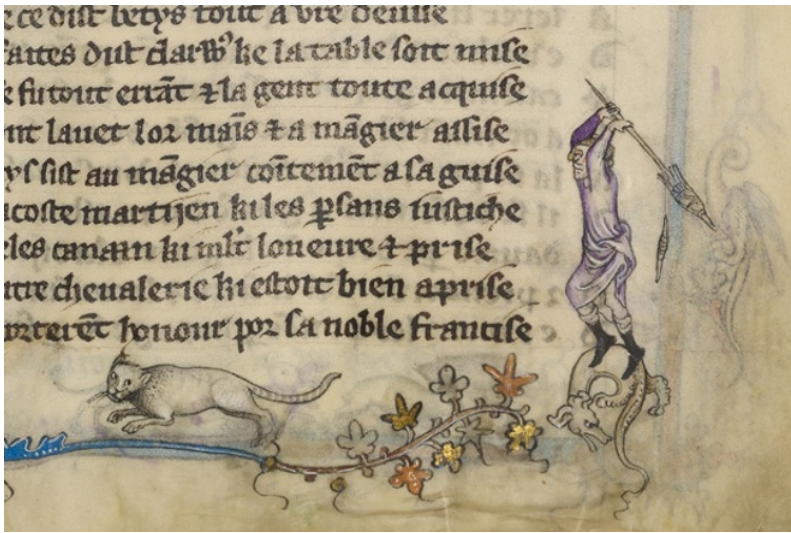 e ce dist betys tout a vr̄e deuise
faites dist clarꝰ ke la table soit mise
e fu tout errāt ⁊ la gent toute acquise
nt lauet lor maīs ⁊ a māgier assise
ys sist au māgier coītemēt a sa guise
acoste martijen ki les ꝑsans iustiche
les canam ki ml̄t loueure ⁊ prise
utre cheualerie ki estoit bien aprise
orterēt honour por sa noble francise